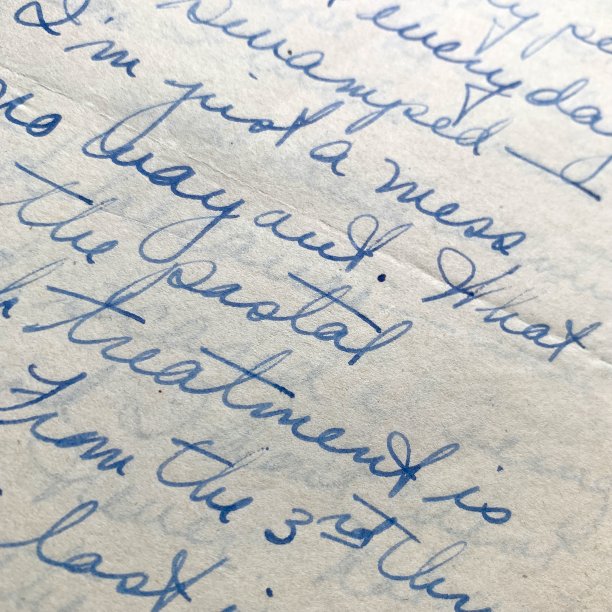 every day
swamped —
I'm just a mess
no way out. What
the postal
treatment is
From the 3rd
last